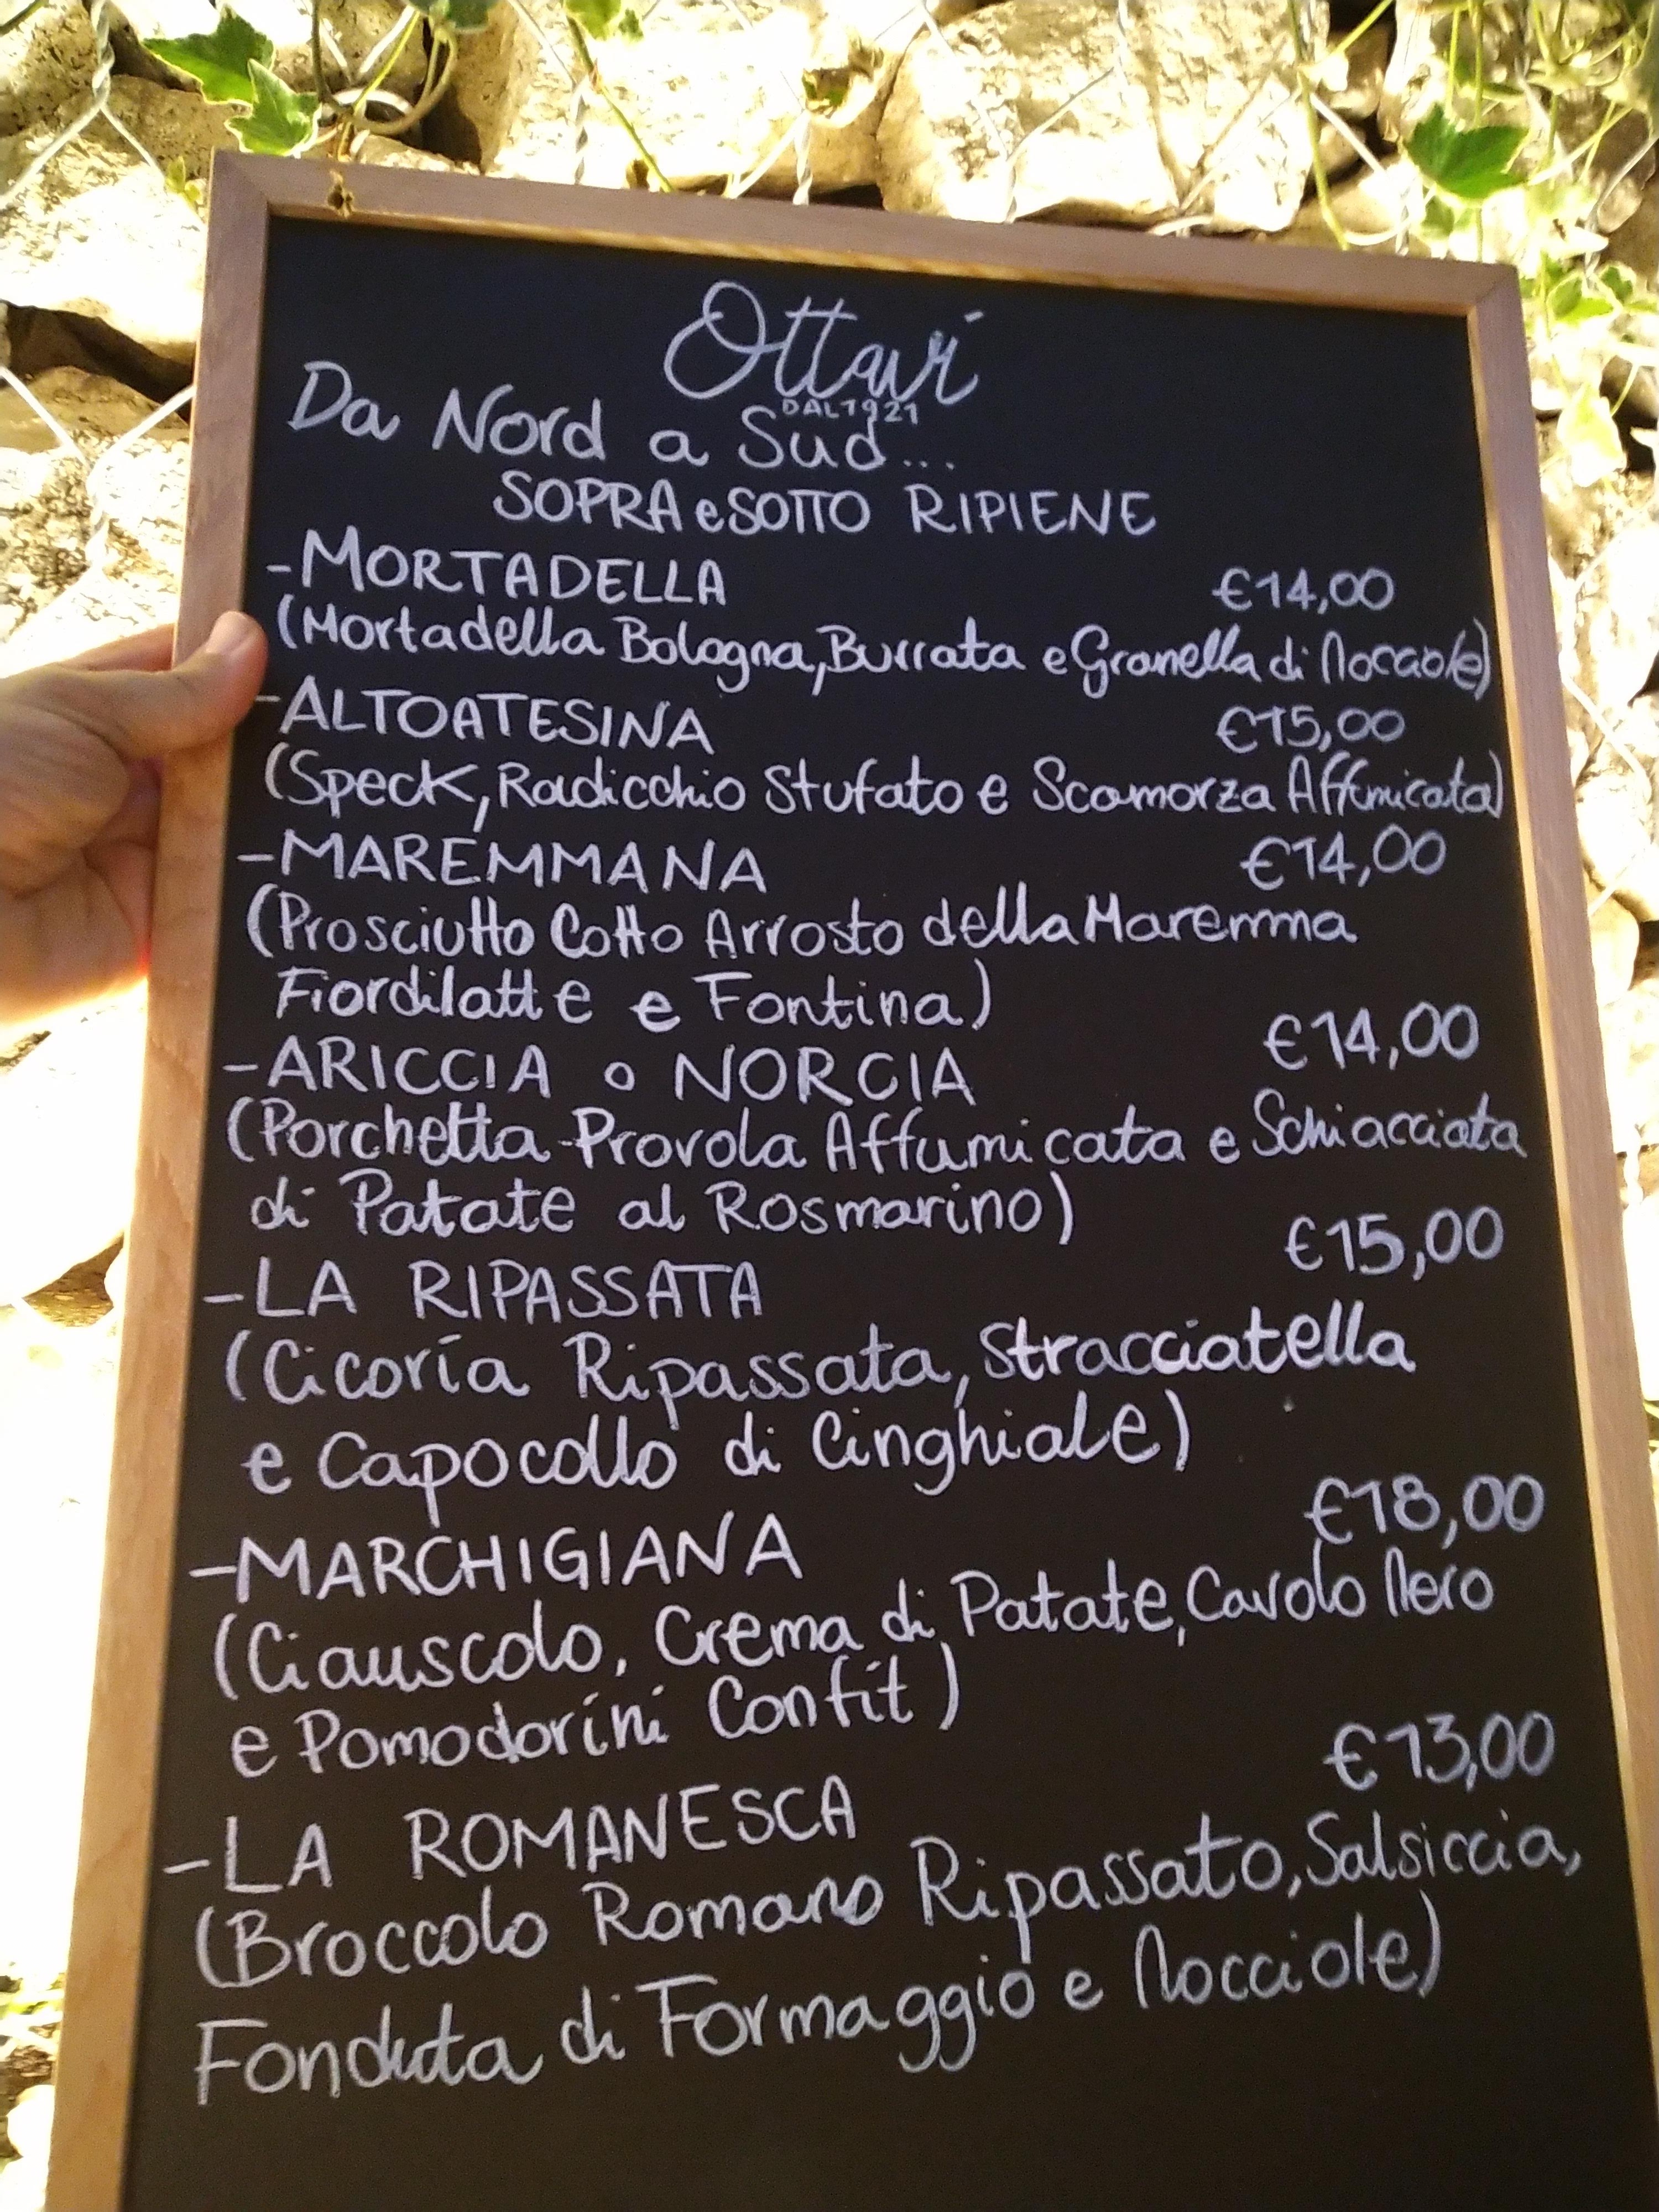 Ottavi
DAL 1921
Da Nord a Sud...
SOPRA e SOTTO RIPIENE
-MORTADELLA €14,00
(Mortadella Bologna, Burrata e Granella di Nocciole)
-ALTOATESINA €15,00
(Speck, Radicchio Stufato e Scamorza Affumicata)
-MAREMMANA €14,00
(Prosciutto Cotto Arrosto della Maremma
Fiordilatte e Fontina)
-ARICCIA o NORCIA €14,00
(Porchetta Provola Affumicata e Schiacciata
di Patate al Rosmarino)
-LA RIPASSATA €15,00
(Cicoria Ripassata, Stracciatella
e Capocollo di Cinghiale)
-MARCHIGIANA €18,00
(Ciauscolo, Crema di Patate, Cavolo Nero
e Pomodorini Confit)
-LA ROMANESCA €13,00
(Broccolo Romano Ripassato, Salsiccia,
Fonduta di Formaggio e Nocciole)